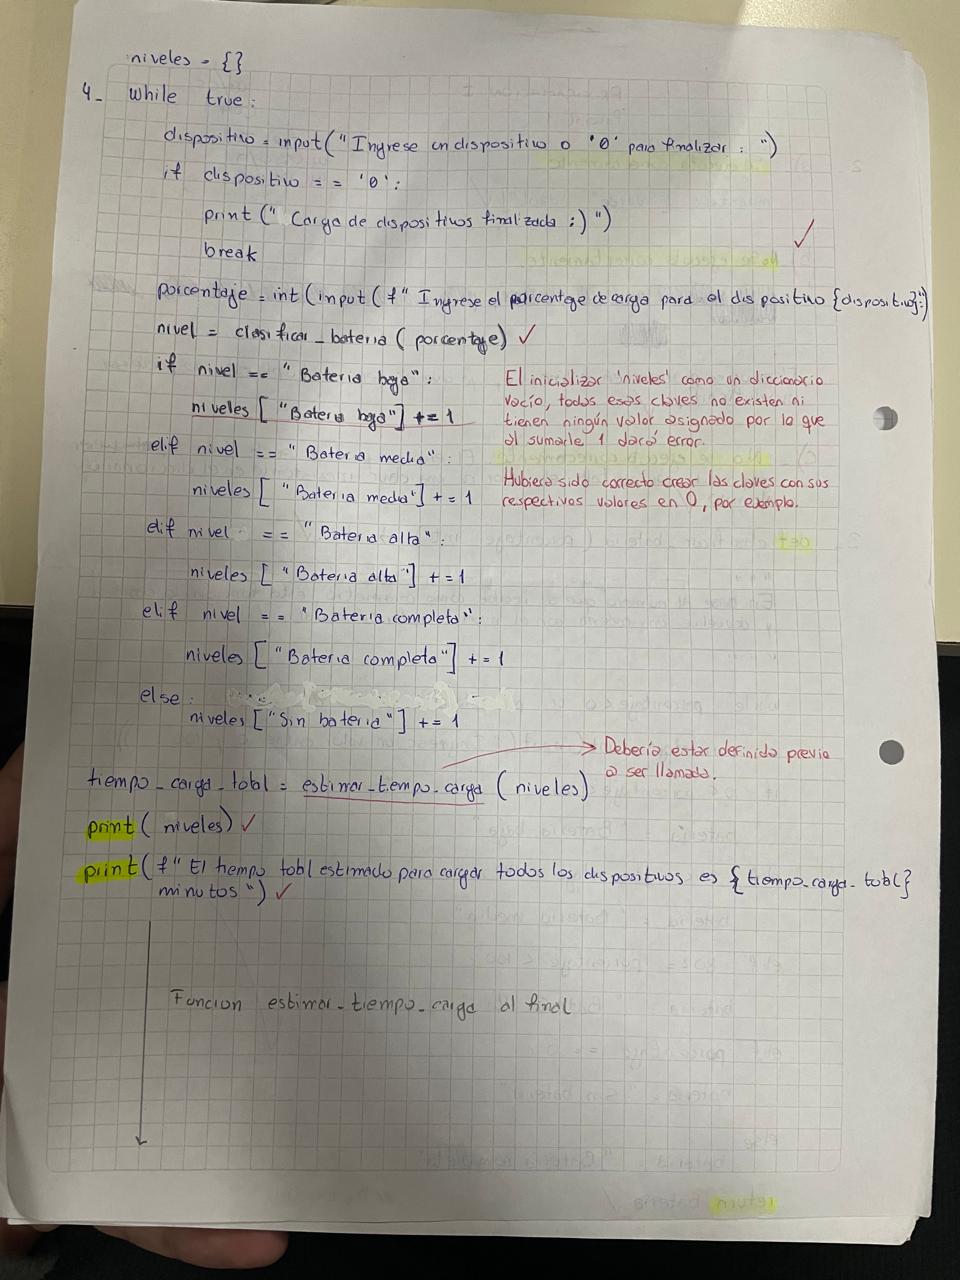 niveles = {}
4- while true:
dispositivo = input("Ingrese un dispositivo o '0' para finalizar : ")
if dispositivo == '0':
print (" Carga de dispositivos finalizada :) ")
break
porcentaje = int (input (f" Ingrese el porcentaje de carga para el dispositivo {dispositivo}:")
nivel = clasificar_bateria ( porcentaje) ✓
if nivel == " Bateria baja" :
niveles [ "Bateria baja"] += 1
elif nivel == " Bateria media" :
niveles [ "Bateria media"] += 1
elif nivel == " Bateria alta" :
niveles [ "Bateria alta"] += 1
elif nivel == "Bateria completa" :
niveles [ "Bateria completa"] += 1
else :
niveles ["Sin bateria"] += 1
El inicializar 'niveles' como un diccionario
vacío, todas esas claves no existen ni
tienen ningún valor asignado por lo que
al sumarle 1 dará error.
Hubiera sido correcto crear las claves con sus
respectivos valores en 0, por ejemplo.
→ Debería estar definido previo
a ser llamada.
tiempo_carga_total = estimar_tiempo_carga ( niveles)
print ( niveles) ✓
print (f" El tiempo total estimado para cargar todos los dispositivos es {tiempo_carga_total}
minutos ") ✓
Funcion estimar_tiempo_carga al final